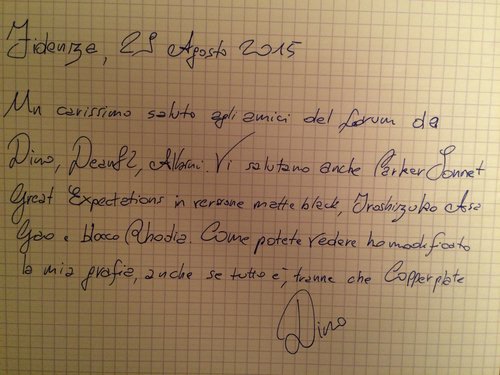 Fidenza, 29 Agosto 2015
Un carissimo saluto agli amici del forum da
Dino, Dean82, Alvarni. Vi salutano anche Parker Sonnet
Great Expectations in versione matte black, Iroshizuku Asa
Gao e blocco Rhodia. Come potete vedere ho modificato
la mia grafia, anche se tutto è, tranne che Copperplate
Dino